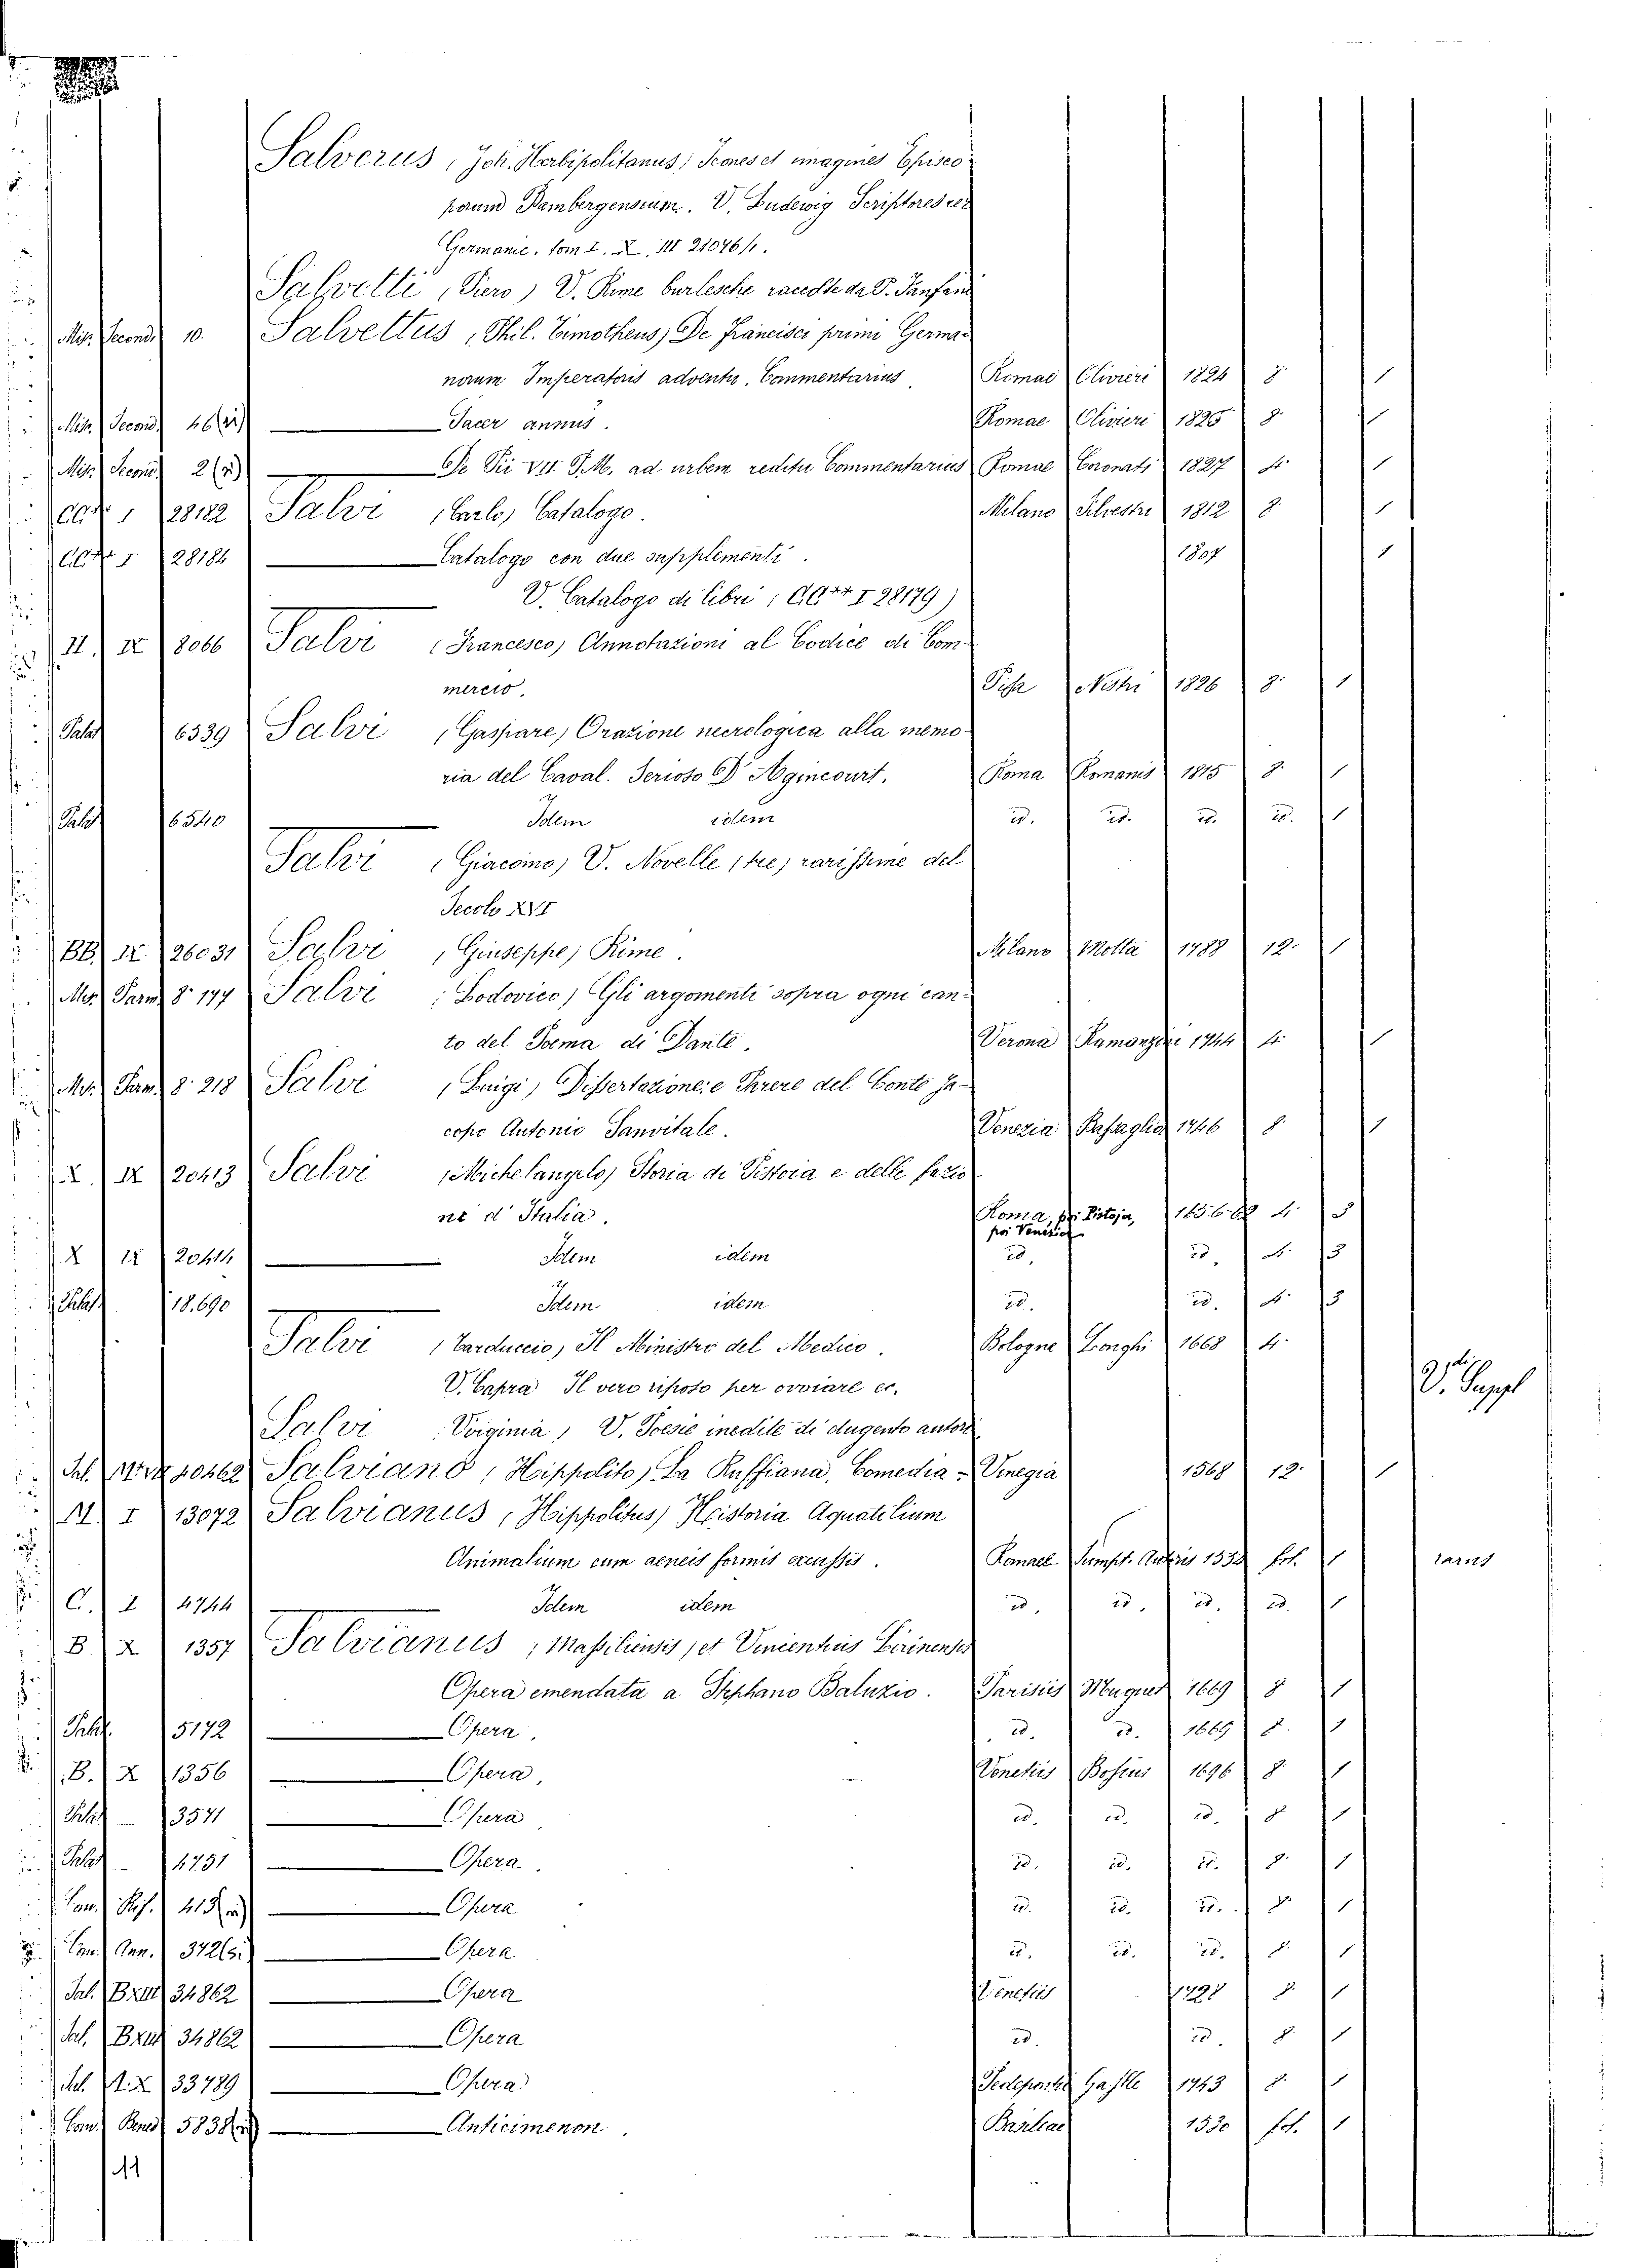 Salverus, Joh. Herbipolitanus) Icones et imagines Episco-
porum Bambergensium. V. Ludewig Scriptores rer
Germanic. tom I. X. III 21076/1.
Salvetti, Piero) V. Rime burlesche raccolte da P. Fanfani
Misc. Second. 10. Salvettus, Phil. Timotheus) De Francisci primi Germa-
norum Imperatoris adventu, Commentarius Romae Olivieri 1824 8. 1
Misc. Second. 46 Sacer annus. Romae Olivieri 1825 8. 1
Misc. Second. 2 De Pii VII P.M. ad urbem reditu Commentarius Romae Coronati 1827 1
I 28182 Salvi, Carlo) Catalogo. Milano Silvestri 1812 8. 1
I 28184 Catalogo con due supplementi. 1807 1
V. Catalogo di libri (CC** I 28179)
IX 8066 Salvi (Francesco) Annotazioni al Codice di Com-
mercio. Pisa Nistri 1826 8. 1
Palat 6539 Salvi, Gaspare) Orazione necrologica alla memo-
ria del Caval. Serioso D'Agincourt. Roma Romanis 1815 8. 1
Palat 6540 Idem idem id. id. id. id. 1
Salvi (Giacomo) V. Novelle (tre) rarissime del
Secolo XVI
BB. IX. 26031 Salvi, Giuseppe) Rime. Milano Motta 1788 12. 1
Misc. Parm. 8. 177 Salvi (Lodovico) Gli argomenti sopra ogni can-
to del Poema di Dante. Verona Ramanzini 1744 4. 1
Misc. Parm. 8. 218 Salvi, Luigi) Dissertazione: e Threre del Conte Ja-
copo Antonio Sanvitale. Venezia Bassaglia 1746 8 1
X. IX 20413 Salvi (Michelangelo) Storia di Pistoia e delle fazio
ni d'Italia. Roma, poi Pistoja, 1656.62 4. 3
poi Venezia
X IX 20414 Idem idem id. id. 4. 3
Palat 18.690 Idem idem id. id. 4. 3
Salvi, Tarduccio) Il Ministro del Medico. Bologne Longhi 1668 4.
V. Capra Il vero riposo per ovviare ec. V. di Suppl
Salvi Virginia, V. Poesie inedite di dugento autori
40462 Salviano, Hippolito) La Ruffiana, Comedia. Vinegia 1568 12. 1
M I 13072 Salvianus, Hippolitus) Historia Aquatilium
Animalium cum aeneis formis excussis. Romae Sumpt. Autoris 1554 fol. 1 rarus
C. I 4744 Idem idem id. id. id. id. 1
B. X 1357 Salvianus, Massiliensis, et Vincentius Lirinensis
Opera emendata a Stephano Baluzio. Parisiis Muguet 1669 8 1
Palat. 5172 Opera. id. id. 1669 8. 1
B. X 1356 Opera, Venetiis Bosius 1696 8 1
Palat 3571 Opera id. id. id. 8 1
Palat 4751 Opera. id. id. id. 8. 1
Can. Rif. Opera id. id. id. 8. 1
Can. Ann. 372 Opera id. id. id. 8. 1
Sal. BXIII 34862 Opera Venetiis 1728 8. 1
Sal. BXIII 34862 Opera id. id. 8. 1
33789 Opera Pedeponti Gastle 1743 8. 1
Can. Bened 5838 Anticimenon. Basileae 1530 fol. 1
41